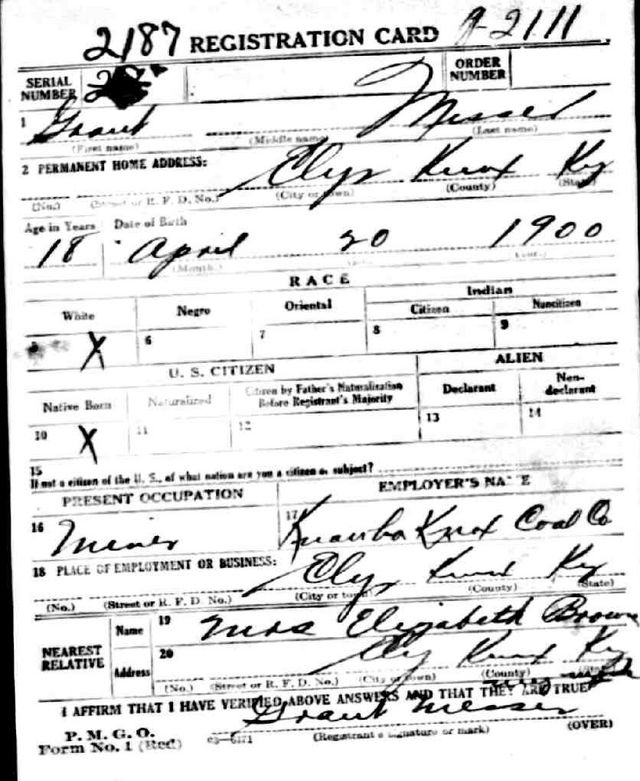 2187 REGISTRATION CARD 2111
SERIAL NUMBER
ORDER NUMBER
1 Grant Messer
(First name) (Middle name) (Last name)
2 PERMANENT HOME ADDRESS: Elys Knox Ky
(No.) (Street or R. F. D. No.) (City or town) (County) (State)
Age in Years Date of Birth
18 April 20 1900
(Month.)
RACE
White Negro Oriental Indian
Citizen Noncitizen
5 X 6 7 8 9
U. S. CITIZEN ALIEN
Native Born Naturalized Citizen by Father's Naturalization Before Registrant's Majority Declarant Non-declarant
10 X 11 12 13 14
15
If not a citizen of the U. S., of what nation are you a citizen or subject?
PRESENT OCCUPATION EMPLOYER'S NAME
16 Miner 17 Knox Coal Co
18 PLACE OF EMPLOYMENT OR BUSINESS: Elys Knox Ky
(No.) (Street or R. F. D. No.) (City or town) (County) (State)
NEAREST RELATIVE
Name 19 Mrs Elizabeth Brown
Address 20 Ely Knox Ky
(No.) (Street or R. F. D. No.) (City or town) (County) (State)
I AFFIRM THAT I HAVE VERIFIED ABOVE ANSWERS AND THAT THEY ARE TRUE
Grant Messer
P. M. G. O.
Form No. 1 (Red) (Registrant's signature or mark) (OVER)